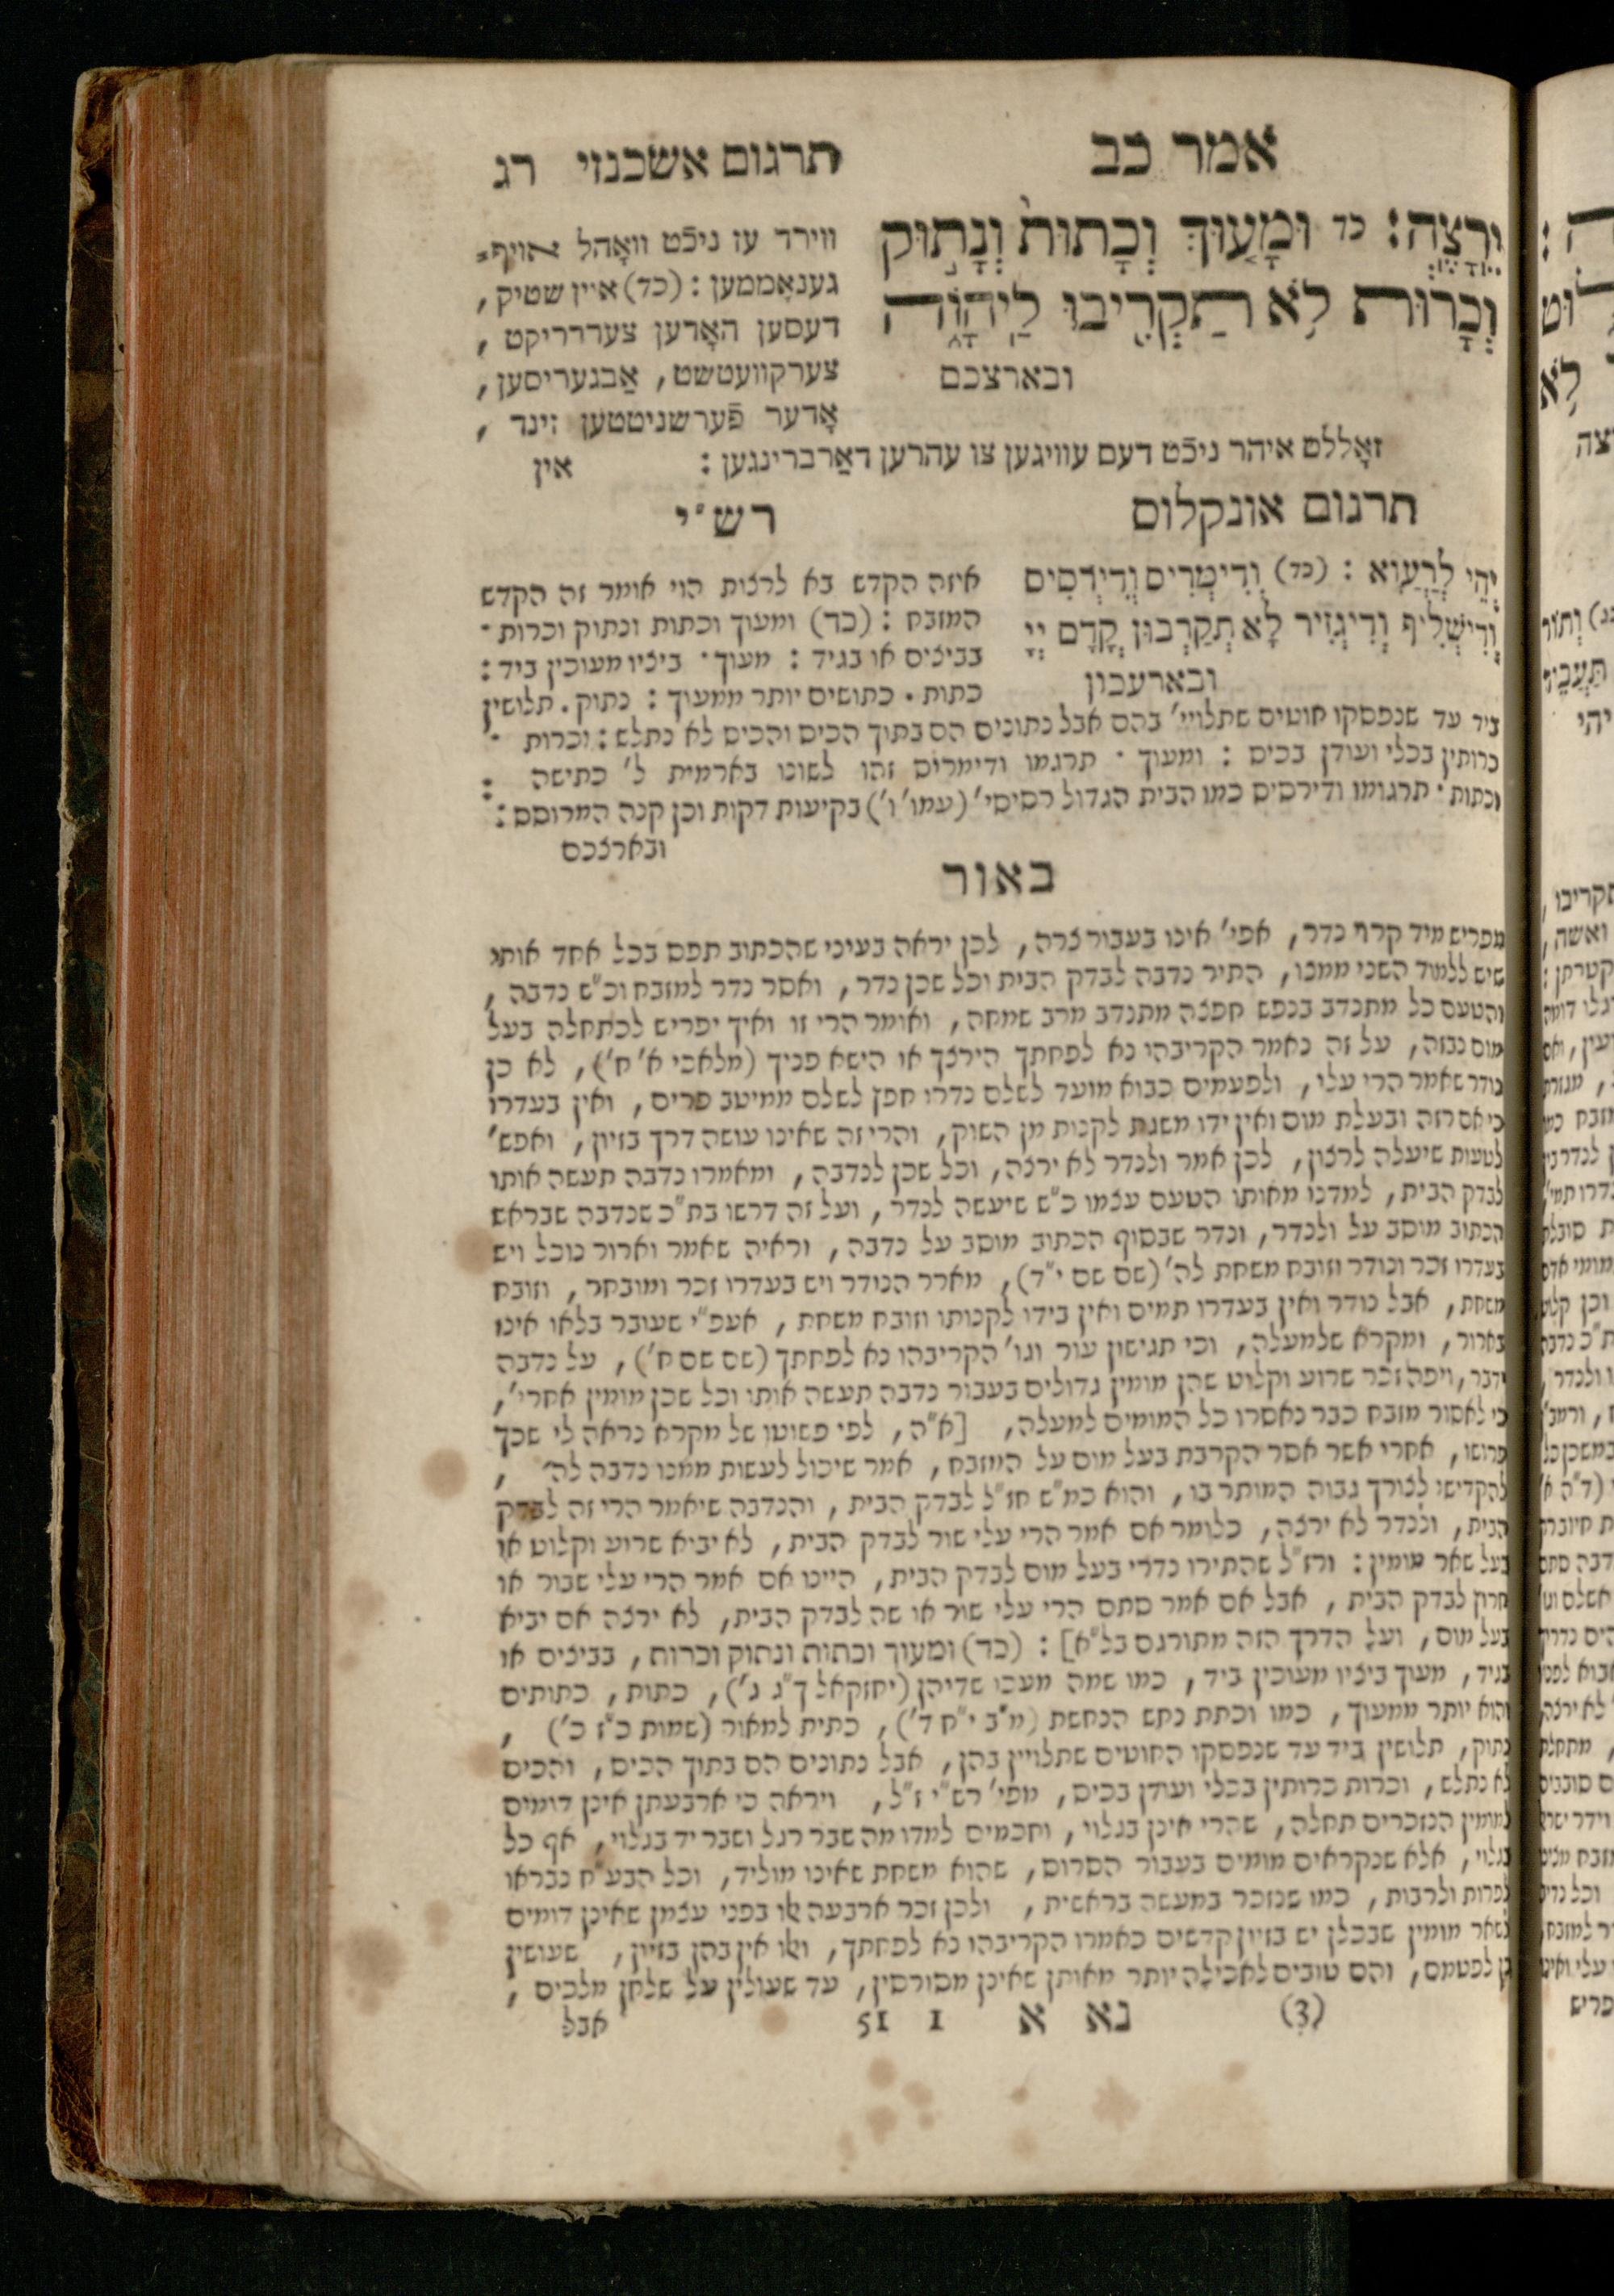 אמר כב
תרגום אשכנזי רג
יֵרָצֶה׃ כד וּמָעוּךְ וְכָתוּת וְנָתוּק
וְכָרוּת לֹא תַקְרִיבוּ לַיהוָה
ובארצכם
ווירד עז ניכט וואָהל אויף־
גענאָממען : (כד) איין שטיק ,
דעסען האָדען צערדריקט ,
צערקוועטשט , אַבגעריסען ,
אָדער פֿערשניטטען זינד ,
זאָללט איהר ניכט דעם עוויגען צו עהרען דאַרברינגען :
אין
תרגום אונקלוס
יְהֵי לְרַעֲוָא : (כד) וְדִימְרִיס וְדִירְסִיס
וְדִישְׁלִיף וְדִיגְזִיר לָא תְקַרְבוּן קֳדָם יְיָ
ובארעכון
רש״י
איזה הקדש בא לרצות הוי אומר זה הקדש
המזבח : (כד) ומעוך וכתות ונתוק וכרות ־
בביצים או בגיד : מעוך ־ ביציו מעוכין ביד :
כתות . כתושים יותר ממעוך : נתוק . תלושין
ביד עד שנפסקו חוטים שתלויי׳ בהם אבל נתונים הם בתוך הכים והכים לא נתלש : וכרות ־
כרותין בכלי ועודן בכים : ומעוך ־ תרגמו ודימריס זהו לשונו בארמית ל׳ כתישה :
וכתות ־ תרגומו ודירסיס כמו הבית הגדול רסיסי׳ (עמו׳ ו׳) בקיעות דקות וכן קנה המרוסס :
ובארצכם
באור
מפריש מיד קרוי נדר , אפי׳ אינו בעבור צרה , לכן יראה בעיני שהכתוב תפס בכל אחד אותו
שיש ללמוד השני ממנו , התיר נדבה לבדק הבית וכל שכן נדר , ואסר נדר למזבח וכ״ש נדבה ,
והטעם כל מתנדב בנפש חפצה מתנדב מרב שמחה , ואומר הרי זו ואיך יפריש לכתחלה בעל
מום נבזה , על זה נאמר הקריבהו נא לפחתך הירצך או הישא פניך (מלאכי א׳ ח׳) , לא כן
נודר שאמר הרי עלי , ולפעמים כבוא מועד לשלם נדרו חפץ לשלם ממיטב פריס , ואין בעדרו
כי אם רזה ובעלת מום ואין ידו משגת לקנות מן השוק , והרי זה שאינו עושה דרך בזיון , ואפש׳
לטעות שיעלה לרצון , לכן אמר ולנדר לא ירצה , וכל שכן לנדבה , ומאמרו נדבה תעשה אותו
לבדק הבית , למדנו מאותו הטעם עצמו כ״ש שיעשה לנדר , ועל זה דרשו בת״כ שנדבה שבראש
הכתוב מוסב על ולנדר , ונדר שבסוף הכתוב מוסב על נדבה , וראיה שאמר וארור נוכל ויש
בעדרו זכר ונודר וזובח משחת לה׳ (שם שם י״ד) , מארר הנודר ויש בעדרו זכר ומובחר , וזובח
משחת , אבל נודר ואין בעדרו תמים ואין בידו לקנותו וזובח משחת , אעפ״י שעובר בלאו אינו
בארור , ומקרא שלמעלה , וכי תגישון עור וגו׳ הקריבהו נא לפחתך (שם שם ח׳) , על נדבה
ידבר , ויפה זכר שרוע וקלוט שהן מומין גדולים בעבור נדבה תעשה אותו וכל שכן מומין אחרי׳ ,
כי לאסור מזבח כבר נאסרו כל המומים למעלה , [א״ה , לפי פשוטו של מקרא נראה לי שכך
פרושו , אחרי אשר אסר הקרבת בעל מום על המזבח , אמר שיכול לעשות ממנו נדבה לה׳ ,
להקדישו לצורך גבוה המותר בו , והוא כמ״ש חז״ל לבדק הבית , והנדבה שיאמר הרי זה לבדק
הבית , ולנדר לא ירצה , כלומר אם אמר הרי עלי שור לבדק הבית , לא יביא שרוע וקלוט או
בעל שאר מומין : ורז״ל שהתירו נדרי בעל מום לבדק הבית , היינו אם אמר הרי עלי שבור או
חרוץ לבדק הבית , אבל אם אמר סתם הרי עלי שור או שה לבדק הבית , לא ירצה אם יביא
בעל מום , ועל הדרך הזה מתורגם בל״א] : (כד) ומעוך וכתות ונתוק וכרות , בביצים או
בגיד , מעוך ביציו מעוכין ביד , כמו שמה מעכו שדיהן (יחזקאל כ״ג ג׳) , כתות , כתותים
והוא יותר ממעוך , כמו וכתת נחש הנחשת (מ״ב י״ח ד׳) , כתית למאור (שמות כ״ז כ׳) ,
נתוק , תלושין ביד עד שנפסקו החוטים שתלויין בהן , אבל נתונים הם בתוך הכים , והכים
לא נתלש , וכרות כרותין בכלי ועודן בכים , מפי׳ רש״י ז״ל , ויראה כי ארבעתן אינן דומים
למומין הנזכרים תחלה , שהרי אינן בגלוי , וחכמים למדו מה שבר רגל ושבר יד בגלוי , אף כל
בגלוי , אלא שנקראים מומים בעבור הסרום , שהוא משחת שאינו מוליד , וכל הבע״ח נבראו
לפרות ולרבות , כמו שנזכר במעשה בראשית , ולכן זכר ארבעה אלו בפני עצמן שאינן דומים
לשאר מומין שבכלן יש בזיון קדשים כאמרו הקריבהו נא לפחתך , ואלו אין בהן בזיון , שעושין
כן לפטמם , והם טובים לאכילה יותר מאותן שאינן מסורסין , עד שעולין על שלחן מלכים ,
(3) נא א 1 51
אבל